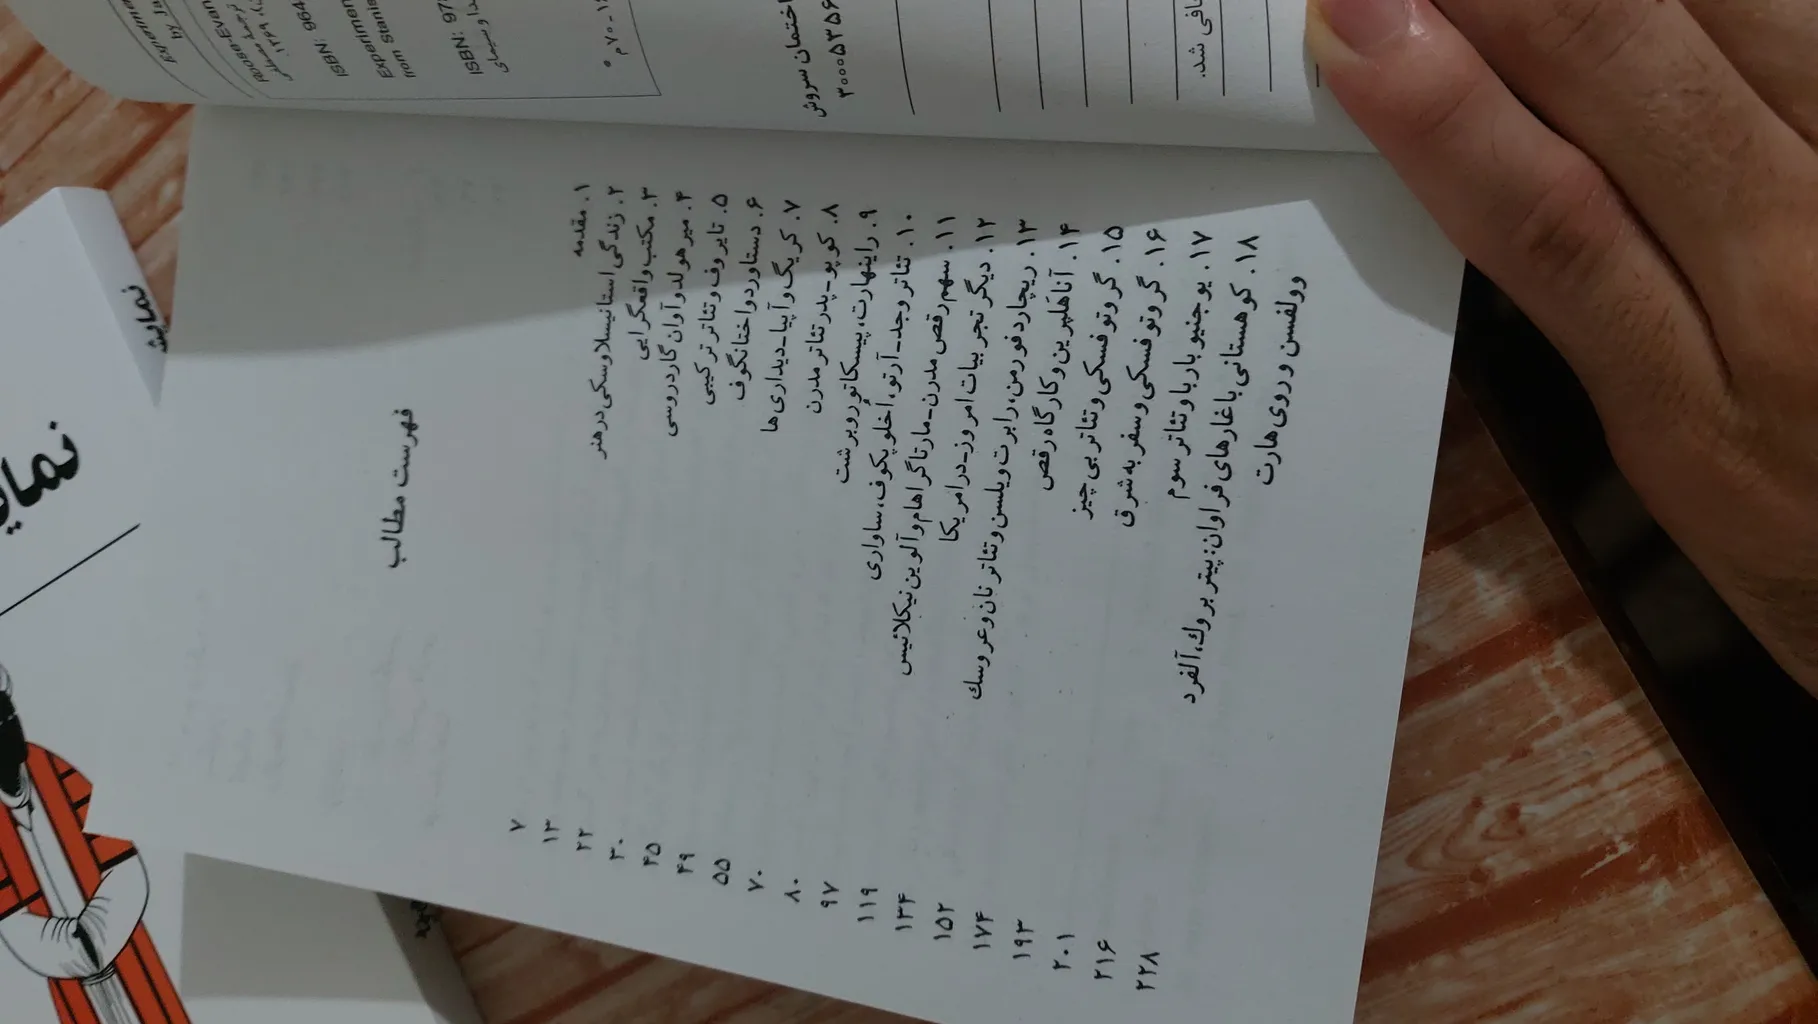 Experimental
by Ja
Roose-Evan
ISBN: 964
Experimen
from Stanis
ISBN: 97
دا و سیمای
۷۰۰ م
اختمان سروش
۳۰۰۰۵۳۵۶
افی شد.
فهرست مطالب
۱. مقدمه ۷
۲. زندگی استانیسلاوسکی در هنر ۱۳
۳. مکتب واقعگرایی ۲۲
۴. میرهولد و آوان گارد روسی ۳۰
۵. تایروف و تئاتر ترکیبی ۴۵
۶. دستاورد واختانگوف ۴۹
۷. کریگ و آپیا-دیداری ها ۵۵
۸. کوپو-پدر تئاتر مدرن ۷۰
۹. راینهارت، پیسکاتور و برشت ۸۰
۱۰. تئاتر وجد-آرتو، اُخلوپکوف، ساواری ۹۷
۱۱. سهم رقص مدرن-مارتا گراهام و آلوین نیکلائیس ۱۱۹
۱۲. دیگر تجربیات امروز-در امریکا ۱۳۴
۱۳. ریچارد فورمن، رابرت ویلسن و تئاتر نان و عروسك ۱۵۲
۱۴. آنا هَلپرین و کارگاه رقص ۱۷۴
۱۵. گروتوفسکی و تئاتر بی چیز ۱۹۳
۱۶. گروتوفسکی و سفر به شرق ۲۰۱
۱۷. یوجنیو باربا و تئاتر سوم ۲۱۶
۱۸. کوهستانی با غارهای فراوان: پیتر بروك، آلفرد ۲۲۸
وولفسن و روی هارت
نمایش
نمای